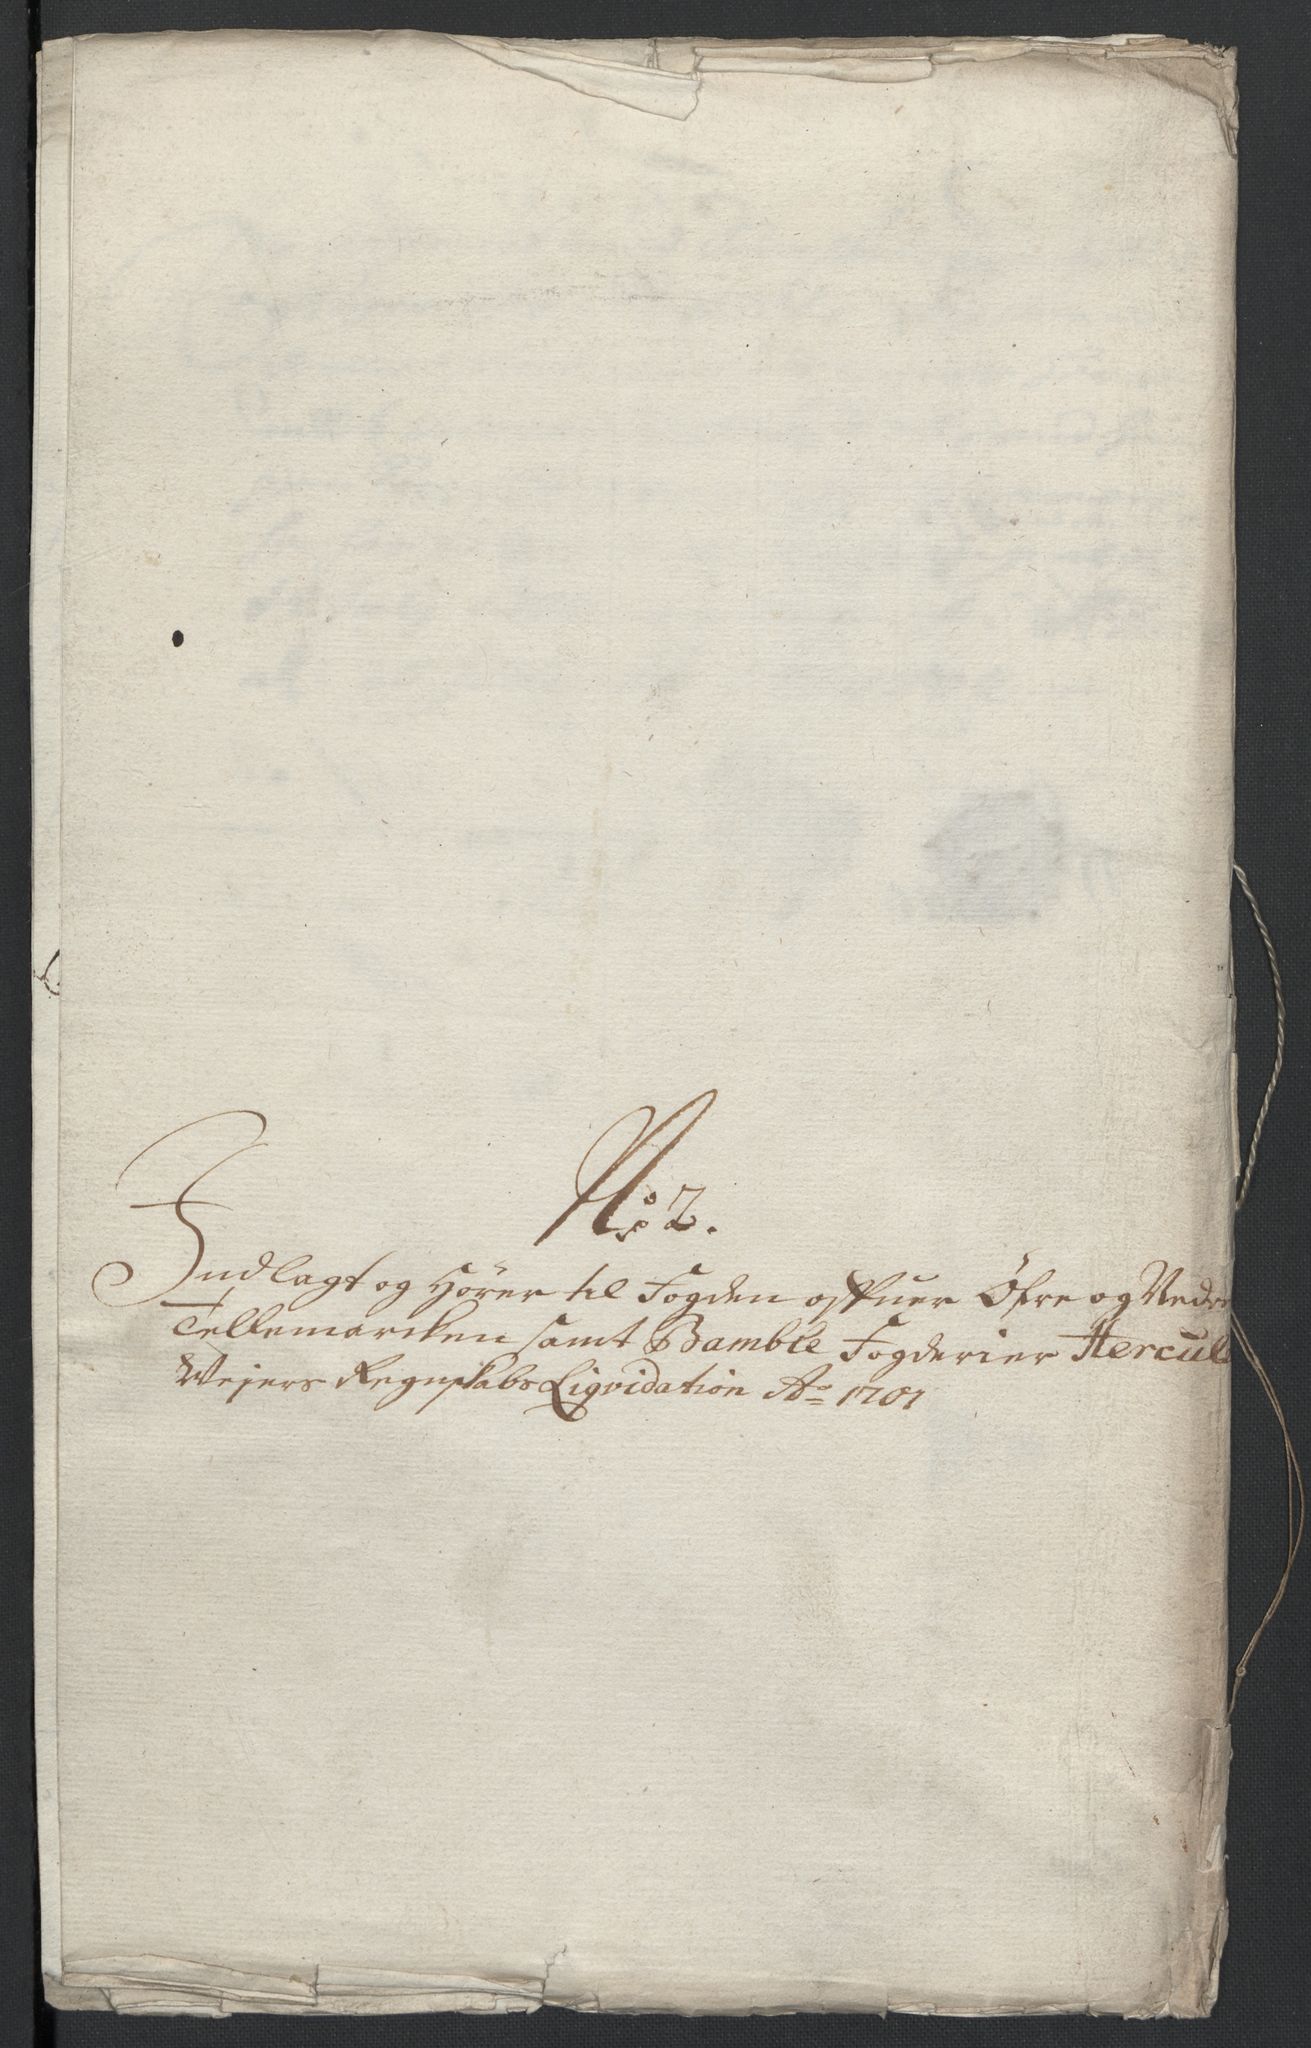 No: 2.
Indlagt og Hörer til Fogden offuer Öfre og Nedre
Tellemarcken samt Bamble Fogderier Hercul
Wejers Regnskabs Liqvidation Ao 1707